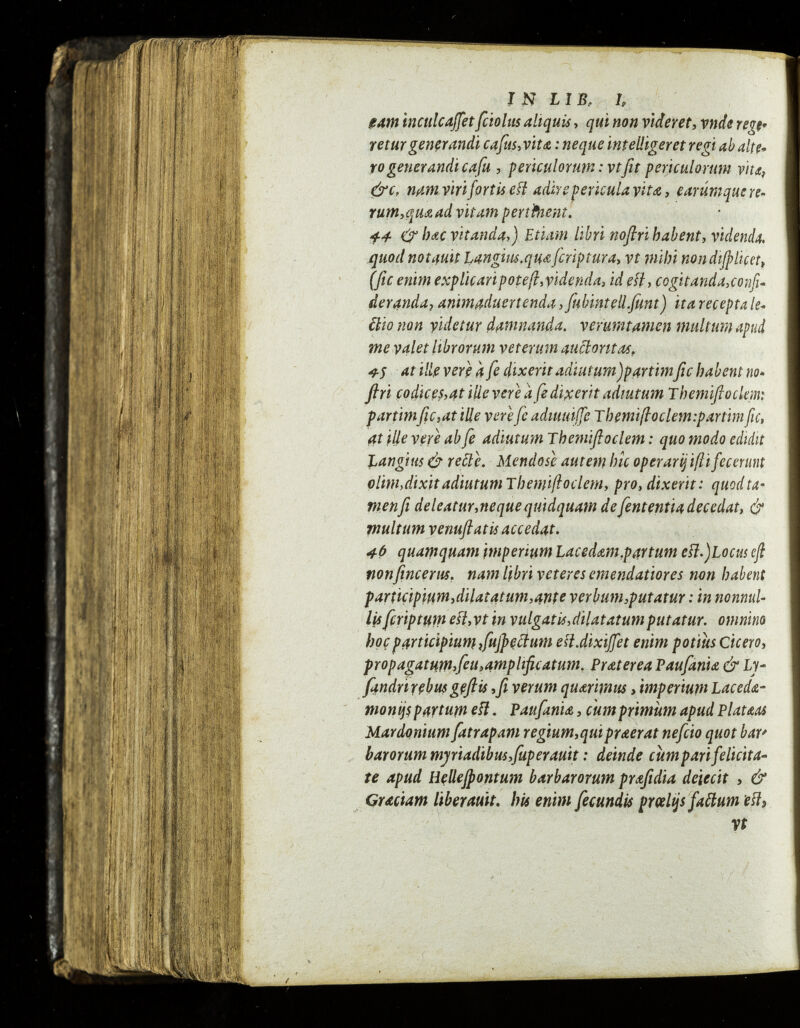 IN LIB. I.
eam inculcaſſet ſciolus aliquis, qui non videret, vnde rege-
retur generandi caſus, vitæ: neque intelligeret regi ab alte-
ro generandi caſu, periculorum: vt ſit periculorum vitæ,
&c. nam viri fortis eſt adire pericula vitæ, earúmque re-
rum, quæ ad vitam pertinent.
44 & hæc vitanda,) Etiam libri noſtri habent, videnda.
quod notauit Langius. quæ ſcriptura, vt mihi non diſplicet,
(ſic enim explicari poteſt, videnda, id eſt, cogitanda, conſi-
deranda, animaduertenda, ſubintell. ſunt) ita recepta le-
ctio non videtur damnanda. verumtamen multum apud
me valet librorum veterum auctoritas.
45 at ille verè à ſe dixerit adiutum) partim ſic habent no-
ſtri codices, at ille vere à ſe dixerit adiutum Themiſtoclem:
partim ſic, at ille verè ſe adiuuiſſe Themiſtoclem: partim ſic,
at ille verè ab ſe adiutum Themiſtoclem: quo modo edidit
Langius & rectè. Mendosè autem hîc operarij iſti fecerunt
olim, dixit adiutum Themiſtoclem, pro, dixerit: quod ta-
men ſi deleatur, neque quidquam de ſententia decedat, &
multum venuſtatis accedat.
46 quamquam imperium Lacedæm. partum eſt.) Locus eſt
non ſincerus. nam libri veteres emendatiores non habent
participium, dilatatum, ante verbum, putatur: in nonnul-
lis ſcriptum eſt, vt in vulgatis, dilatatum putatur. omnino
hoc participium, ſuſpectum eſt. dixiſſet enim potiùs Cicero,
propagatum, ſeu, amplificatum. Præterea Pauſaniæ & Ly-
ſandri rebus geſtis, ſi verum quærimus, imperium Lacedæ-
monijs partum eſt. Pauſaniæ, cùm primùm apud Platæas
Mardonium ſatrapam regium, qui præerat neſcio quot bar-
barorum myriadibus, ſuperauit: deinde cùm pari felicita-
te apud Helleſpontum barbarorum præſidia deiecit, &
Græciam liberauit. his enim ſecundis prœlijs factum eſt,
vt